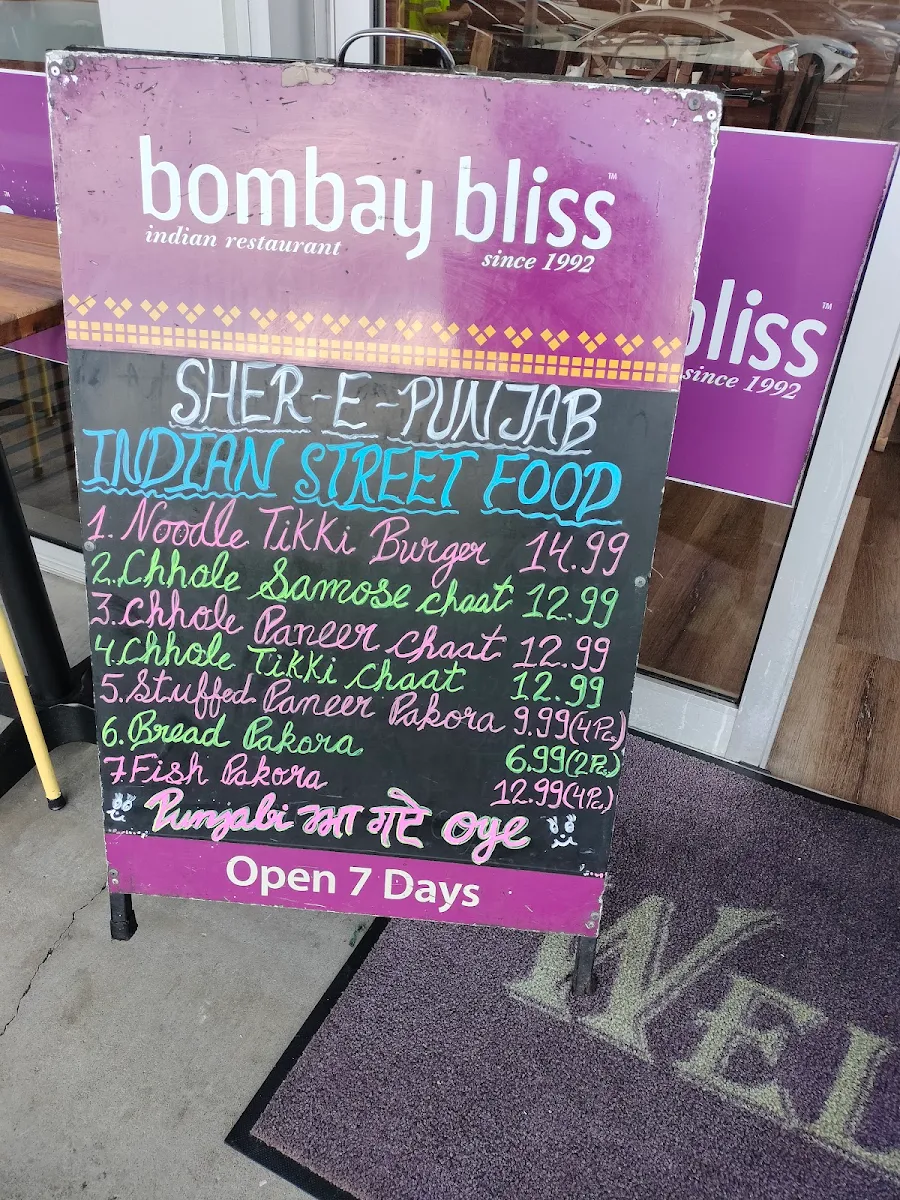 bombay bliss™
indian restaurant
since 1992
SHER-E-PUNJAB
INDIAN STREET FOOD
1. Noodle Tikki Burger 14.99
2. Chhole Samose chaat 12.99
3. Chhole Paneer chaat 12.99
4. Chhole Tikki chaat 12.99
5. Stuffed Paneer Pakora 9.99 (4Pc)
6. Bread Pakora 6.99 (2Pc)
7 Fish Pakora 12.99 (4Pc)
Punjabi ਆ ਗਏ Oye
Open 7 Days
bliss™
since 1992
WEL